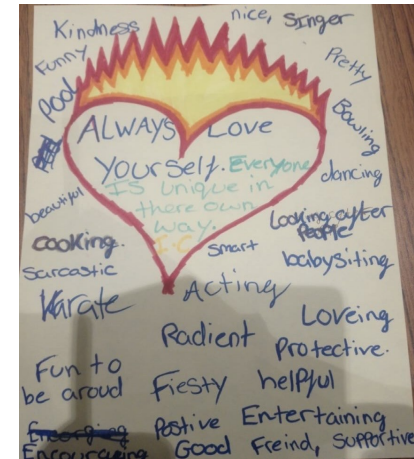 Kindness
nice, Singer
Funny
Pretty
Pool
Bowling
ALWAYS Love
Yourself. Everyone
Is unique in
there own
way.
I.C
dancing
beautiful
Looking after
People
cooking.
smart
babysiting
Sarcastic
Acting
Karate
Loveing
Radient
Protective.
Fun to
be aroud
Fiesty
helpful
Postive
Entertaining
Encouraging
Good Freind, Supportive